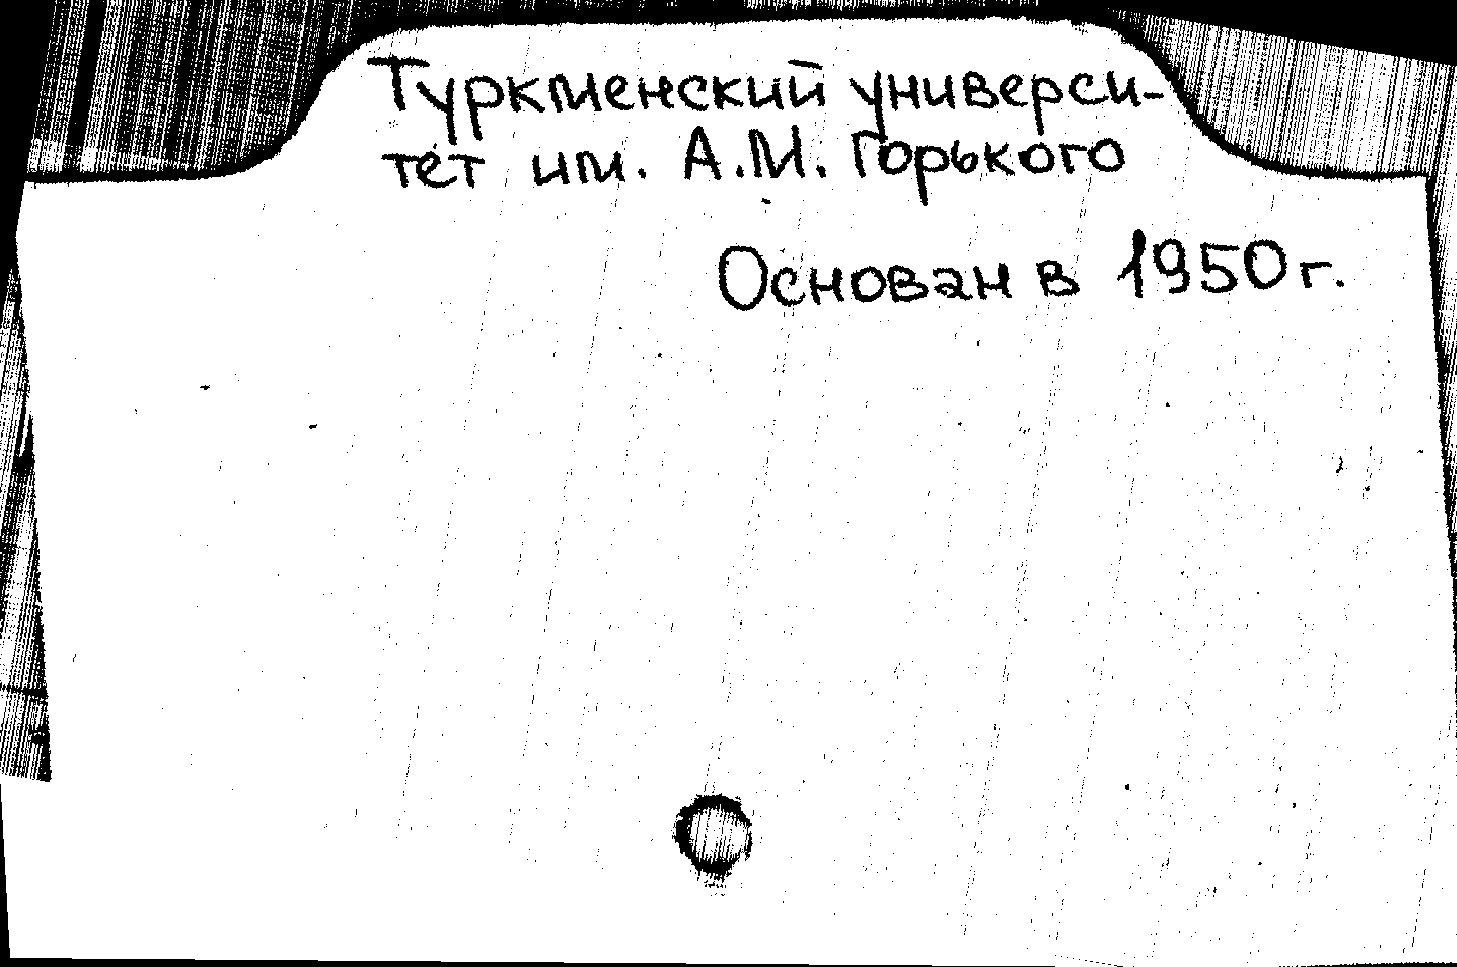 Туркменский универси-
тет им. А.М. Горького
Основан в 1950 г.